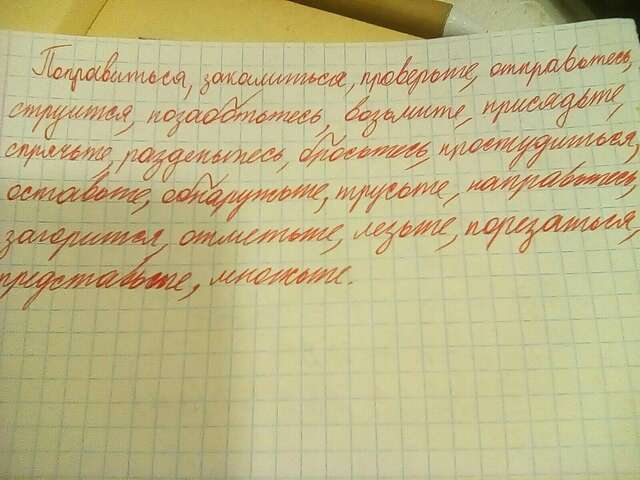 Поправиться, закалиться, проверьте, отправьтесь,
струится, позаботьтесь, возьмите, присядьте,
спрячьте, разденьтесь, бросьтесь, простудиться,
оставьте, обнаружьте, трусьте, направьтесь
загорится, отметьте, лезьте, порезаться,
представьте, множьте.